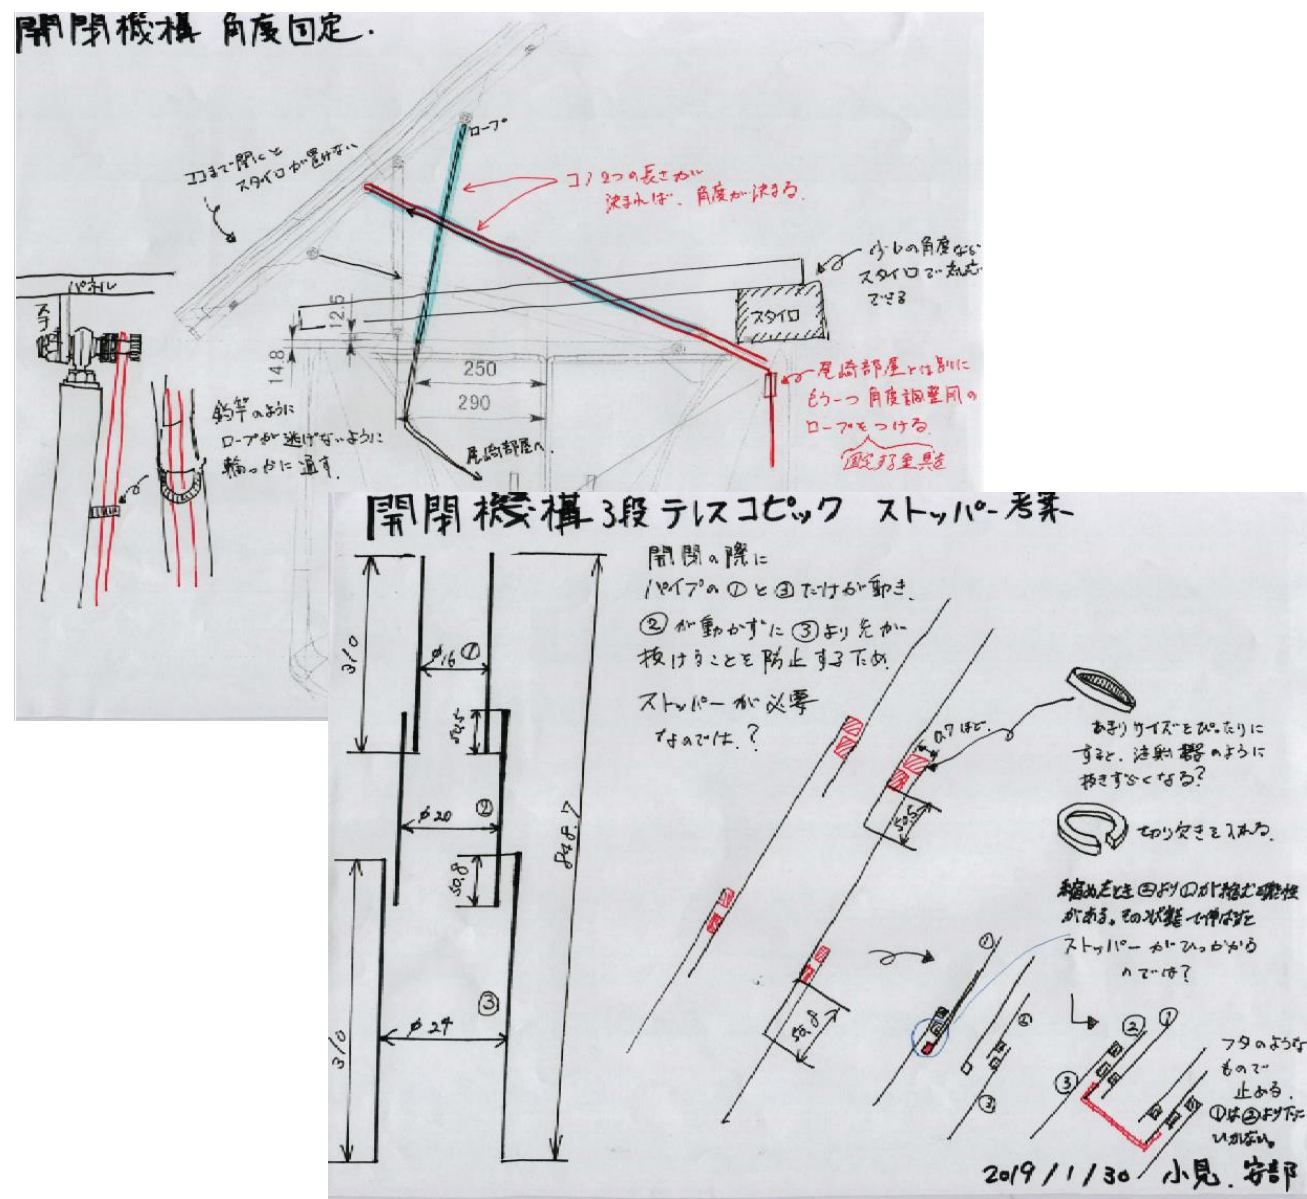 開閉機構 角度固定.
ロープ
ココまで開くと
スタイロが置けない
コノ2つの長さが
決まれば、角度が決まる.
少しの角度なら
スタイロで対応
できる
スタイロ
パネル
12.5
14.8
250
290
釣竿のように
ロープが逃げないように
輪っかに通す.
尾崎部屋へ.
尾崎部屋とは別に
もう一つ角度調整用の
ロープをつける.
固定する金具を
開閉機構 3段テレスコピック ストッパー考案
開閉の際に
パイプの①と③だけが動き、
②が動かずに③より先が
抜けることを防止するため
ストッパーが必要
なのでは.?
310
φ16 ①
54.5
φ20 ②
50.8
φ24 ③
310
848.7
0.7ほど.
50.5
50.8
あまりサイズをぴったりに
すると、注射器のように
抜きずらくなる?
切り欠きを入れる.
縮めたとき②より①が縮む可能性
がある。その状態で伸ばすと
ストッパーがひっかかる
のでは?
① ② ③
② ① ③
フタのような
もので
止める.
①は②より下に
いかない。
2019/1/30 小見.安部